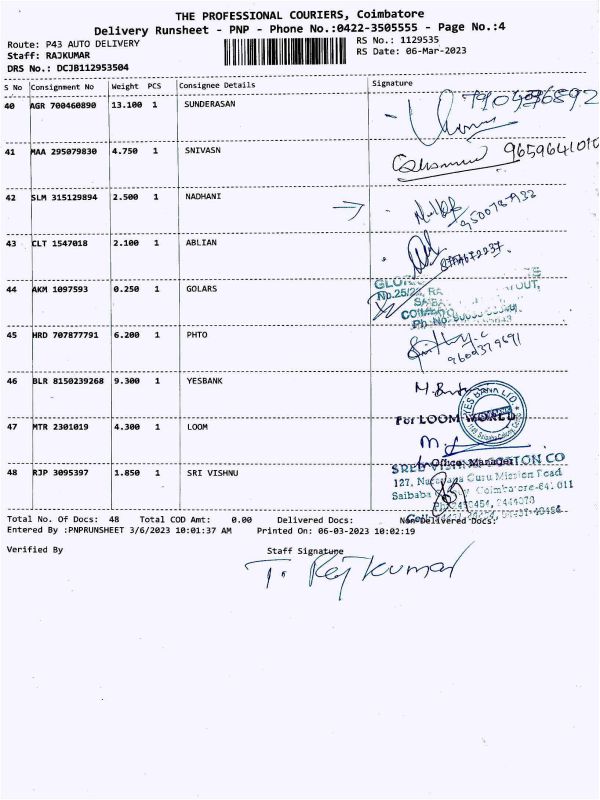 THE PROFESSIONAL COURIERS, Coimbatore
Delivery Runsheet - PNP - Phone No.:0422-3505555 - Page No.:4
Route: P43 AUTO DELIVERY RS No.: 1129535
Staff: RAJKUMAR RS Date: 06-Mar-2023
DRS No.: DCJB112953504
S No Consignment No Weight PCS Consignee Details Signature
40 AGR 700460890 13.100 1 SUNDERASAN
41 MAA 295079830 4.750 1 SNIVASN 9659641010
42 SLM 315129894 2.500 1 NADHANI
43 CLT 1547018 2.100 1 ABLIAN
44 AKM 1097593 0.250 1 GOLARS
45 HRD 707877791 6.200 1 PHTO
9604379691
46 BLR 8150239268 9.300 1 YESBANK
YES BANK LTD.
For LOOM WORLD
47 MTR 2301019 4.300 1 LOOM
Office Manager
COTTON CO
48 RJP 3095397 1.850 1 SRI VISHNU
127, Guru Mission Road
Saibaba Coimbatore-641 011
Total No. Of Docs: 48 Total COD Amt: 0.00 Delivered Docs: Non Delivered Docs:
Entered By :PNPRUNSHEET 3/6/2023 10:01:37 AM Printed On: 06-03-2023 10:02:19
Verified By Staff Signature
T. Rajkumar